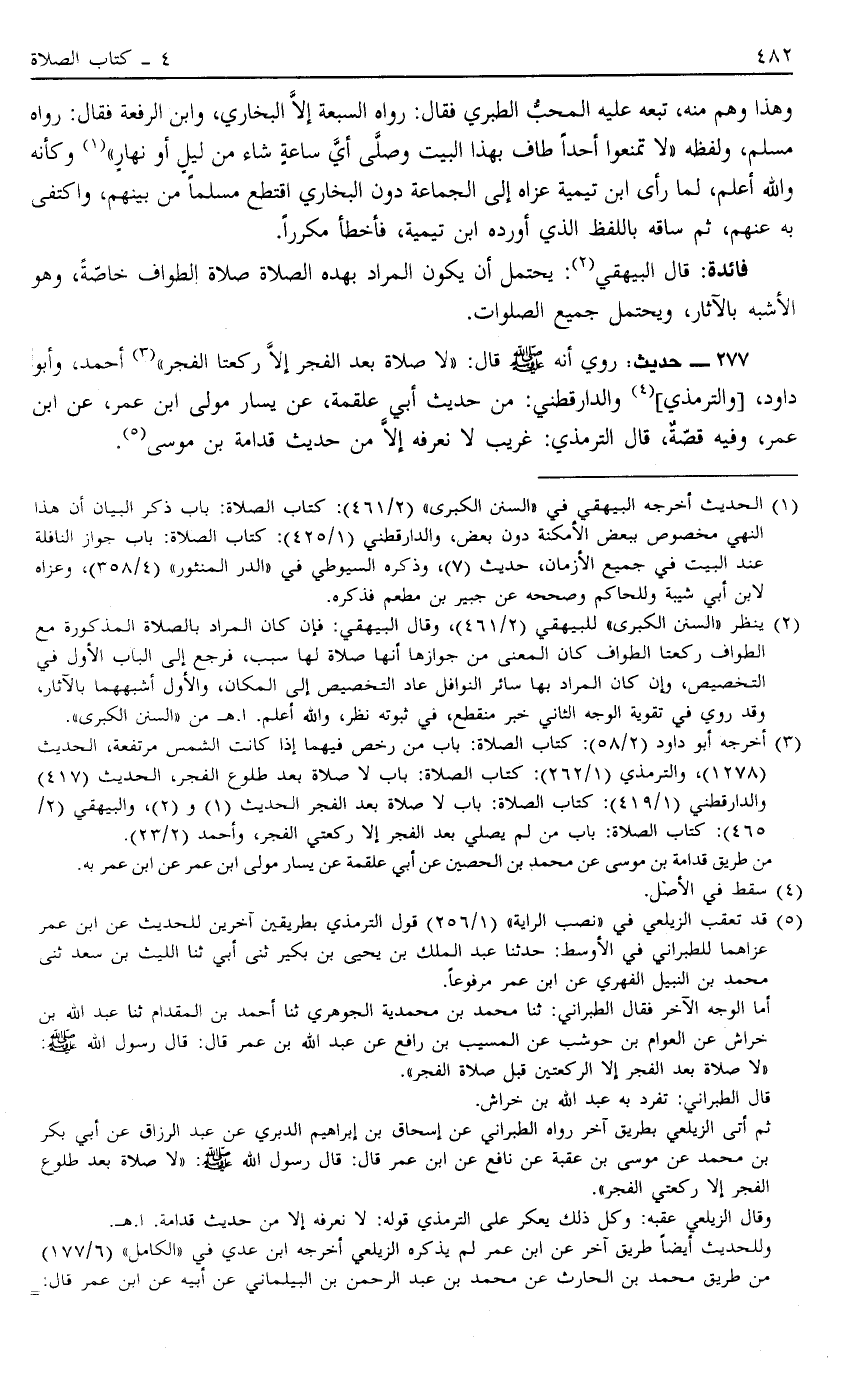 ٤٨٢ ٤ ـ كتاب الصلاة
وهذا وهم منه، تبعه عليه المحبُّ الطبري فقال: رواه السبعة إلاَّ البخاري، وابن الرفعة فقال: رواه
مسلم، ولفظه «لا تمنعوا أحداً طاف بهذا البيت وصلَّى أيَّ ساعةٍ شاء من ليلٍ أو نهارٍ»(١) وكأنه
والله أعلم، لما رأى ابن تيمية عزاه إلى الجماعة دون البخاري اقتطع مسلماً من بينهم، واكتفى
به عنهم، ثم ساقه باللفظ الذي أورده ابن تيمية، فأخطأ مكرراً.
فائدة: قال البيهقي(٢): يحتمل أن يكون المراد بهذه الصلاة صلاة الطواف خاصّةً، وهو
الأشبه بالآثار، ويحتمل جميع الصلوات.
٢٧٧ ـ حديث: روي أنه ﷺ قال: «لا صلاة بعد الفجر إلاَّ ركعتا الفجر»(٣) أحمد، وأبو
داود، [والترمذي](٤) والدارقطني: من حديث أبي علقمة، عن يسار مولى ابن عمر، عن ابن
عمر، وفيه قصّةٌ، قال الترمذي: غريب لا نعرفه إلاَّ من حديث قدامة بن موسى(٥).
(١) الحديث أخرجه البيهقي في «السنن الكبرى» (٤٦١/٢): كتاب الصلاة: باب ذكر البيان أن هذا
النهي مخصوص ببعض الأمكنة دون بعض، والدارقطني (٤٢٥/١): كتاب الصلاة: باب جواز النافلة
عند البيت في جميع الأزمان، حديث (٧)، وذكره السيوطي في «الدر المنثور» (٣٥٨/٤)، وعزاه
لابن أبي شيبة وللحاكم وصححه عن جبير بن مطعم فذكره.
(٢) ينظر «السنن الكبرى» للبيهقي (٤٦١/٢)، وقال البيهقي: فإن كان المراد بالصلاة المذكورة مع
الطواف ركعتا الطواف كان المعنى من جوازها أنها صلاة لها سبب، فرجع إلى الباب الأول في
التخصيص، وإن كان المراد بها سائر النوافل عاد التخصيص إلى المكان، والأول أشبههما بالآثار،
وقد روي في تقوية الوجه الثاني خبر منقطع، في ثبوته نظر، والله أعلم. ا.هـ من «السنن الكبرى».
(٣) أخرجه أبو داود (٥٨/٢): كتاب الصلاة: باب من رخص فيهما إذا كانت الشمس مرتفعة، الحديث
(١٢٧٨)، والترمذي (٢٦٢/١): كتاب الصلاة: باب لا صلاة بعد طلوع الفجر، الحديث (٤١٧)
والدارقطني (٤١٩/١): كتاب الصلاة: باب لا صلاة بعد الفجر الحديث (١) و (٢)، والبيهقي (٢/
٤٦٥): كتاب الصلاة: باب من لم يصلي بعد الفجر إلا ركعتي الفجر، وأحمد (٢٣/٢).
من طريق قدامة بن موسى عن محمد بن الحصين عن أبي علقمة عن يسار مولى ابن عمر عن ابن عمر به.
(٤) سقط في الأصل.
(٥) قد تعقب الزيلعي في «نصب الراية» (٢٥٦/١) قول الترمذي بطريقين آخرين للحديث عن ابن عمر
عزاهما للطبراني في الأوسط: حدثنا عبد الملك بن يحيى بن بكير ثنى أبي ثنا الليث بن سعد ثنى
محمد بن النبيل الفهري عن ابن عمر مرفوعاً.
أما الوجه الآخر فقال الطبراني: ثنا محمد بن محمدية الجوهري ثنا أحمد بن المقدام ثنا عبد الله بن
خراش عن العوام بن حوشب عن المسيب بن رافع عن عبد الله بن عمر قال: قال رسول الله ﷺ:
«لا صلاة بعد الفجر إلا الركعتين قبل صلاة الفجر».
قال الطبراني: تفرد به عبد الله بن خراش.
ثم أتى الزيلعي بطريق آخر رواه الطبراني عن إسحاق بن إبراهيم الدبري عن عبد الرزاق عن أبي بكر
بن محمد عن موسى بن عقبة عن نافع عن ابن عمر قال: قال رسول الله ﷺ: «لا صلاة بعد طلوع
الفجر إلا ركعتي الفجر».
وقال الزيلعي عقبه: وكل ذلك يعكر على الترمذي قوله: لا نعرفه إلا من حديث قدامة. ا.هـ.
وللحديث أيضاً طريق آخر عن ابن عمر لم يذكره الزيلعي أخرجه ابن عدي في «الكامل» (١٧٧/٦)
من طريق محمد بن الحارث عن محمد بن عبد الرحمن بن البيلماني عن أبيه عن ابن عمر قال: =